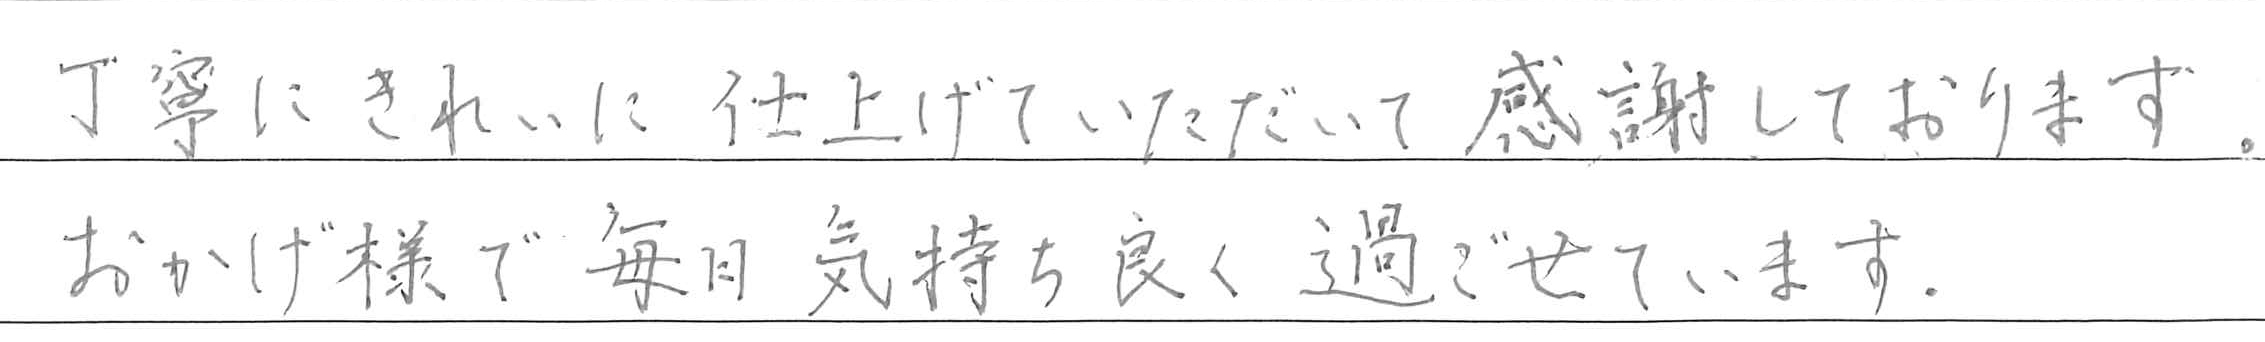 丁寧にきれいに仕上げていただいて感謝しております。
おかげ様で毎日気持ち良く過ごせています.